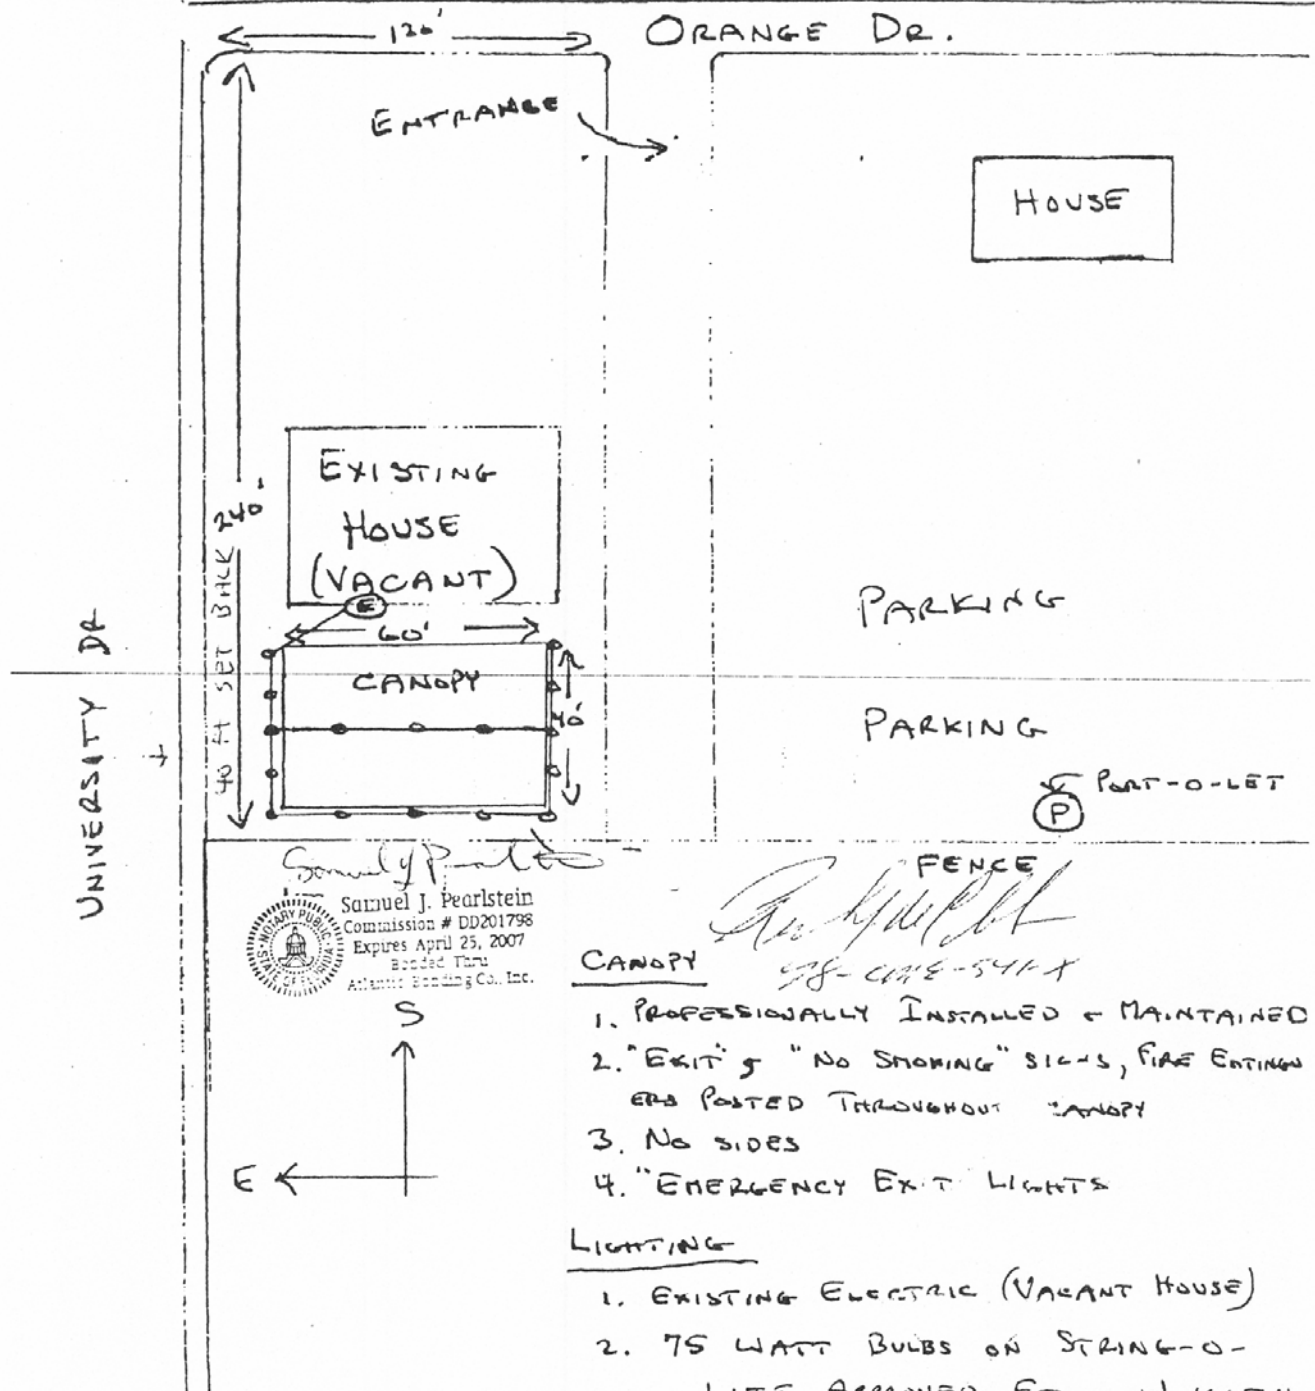 120'
ORANGE DR.
ENTRANCE
HOUSE
EXISTING
HOUSE
(VACANT)
E
240'
40 ft SET BACK
60'
CANOPY
40'
UNIVERSITY DR
PARKING
PARKING
PORT-O-LET
P
FENCE
Samuel J. Pearlstein
Commission # DD201798
Expires April 25, 2007
Bonded Thru
Atlantic Bonding Co., Inc.
NOTARY PUBLIC
STATE OF FLORIDA
S
E
CANOPY
1. PROFESSIONALLY INSTALLED & MAINTAINED
2. "EXIT" & "NO SMOKING" SIGNS, FIRE EXTINGU
ERS POSTED THROUGHOUT CANOPY
3. NO SIDES
4. "EMERGENCY EXIT LIGHTS
LIGHTING
1. EXISTING ELECTRIC (VACANT HOUSE)
2. 75 WATT BULBS ON STRING-O-